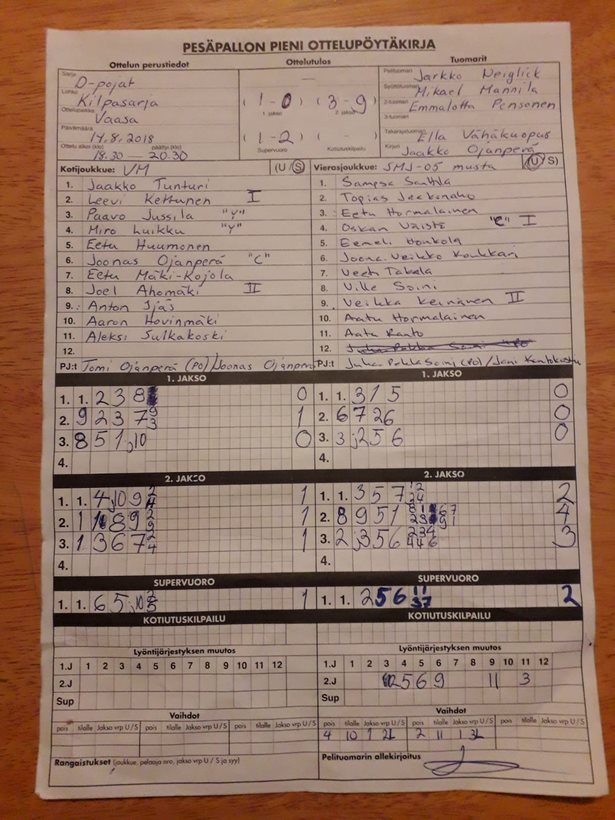 PESÄPALLON PIENI OTTELUPÖYTÄKIRJA
Ottelun perustiedot Ottelutulos Tuomarit
Sarja D-pojat
Lohko Kilpasarja
Ottelupaikka Vaasa
Päivämäärä 14.8.2018
Ottelu alkoi (klo) päättyi (klo)
18.30 — 20.30
( 1 - 0 ) ( 3 - 9 )
1. jakso 2. jakso
( 1 - 2 ) ( - )
Supervuoro Kotiutuskilpailu
Pelituomari Jarkko
Syöttötuomari Mikael Mannila
2-tuomari Emmalotta
3-tuomari
Takarajatuomari Ella Vähäkuopus
Kirjuri Jaakko Ojanperä
Kotijoukkue: VM (U / S)
1. Jaakko Tunturi
2. Leevi Kettunen I
3. Paavo Jussila "Y"
4. Miro Luikku "Y"
5. Eetu Huumonen
6. Joonas Ojanperä "C"
7. Eetu Mäki-Kojola
8. Joel Ahomäki II
9. Anton Ijäs
10. Aaron Hovinmäki
11. Aleksi Sulkakoski
12.
PJ:t Tomi Ojanperä (PO) / Joonas Ojanperä
Vierasjoukkue: SMJ-05 musta (U / S)
1. Sampsa
2. Topias
3. Eetu Hormalainen
4. Oskari "C" I
5. Eemeli Honkola
6. Joona-Veikko Koukkari
7. Veeti Takala
8. Ville Soini
9. Veikka Keinänen II
10. Aatu Hormalainen
11. Aatu Ranto
12.
PJ:t Juha-Pekka Soini (PO) / Joni
1. JAKSO
1. 1. 2 3 8 0
2. 9 2 3 7 9 3 1
3. 8 5 1, 10 0
4.
2. JAKSO
1. 1. 4, 10 9 2 4 1
2. 11 8 9 2 9 1
3. 1 3 6 7 2 4 1
4.
SUPERVUORO
1. 1. 6 5, 10 1
KOTIUTUSKILPAILU
1. JAKSO
1. 1. 3 1 5 0
2. 6 7 2 6 0
3. 3, 2 5 6 0
4.
2. JAKSO
1. 1. 3 5 7 2
2. 8 9 5 1 4
3. 2, 3 5 6 3
4.
SUPERVUORO
1. 1. 2 5 6 11 37 2
KOTIUTUSKILPAILU
Lyöntijärjestyksen muutos
1.J 1 2 3 4 5 6 7 8 9 10 11 12
2.J
Sup
Vaihdot
pois tilalle Jakso vrp U / S pois tilalle Jakso vrp U / S pois tilalle Jakso vrp U / S
Rangaistukset (joukkue, pelaaja nro, jakso vrp U / S ja syy)
Lyöntijärjestyksen muutos
1.J 1 2 3 4 5 6 7 8 9 10 11 12
2.J 2 5 6 9 11 3
Sup
Vaihdot
pois tilalle Jakso vrp U / S pois tilalle Jakso vrp U / S pois tilalle Jakso vrp U / S
4 10 1 2 2 11 1 3
Pelituomarin allekirjoitus